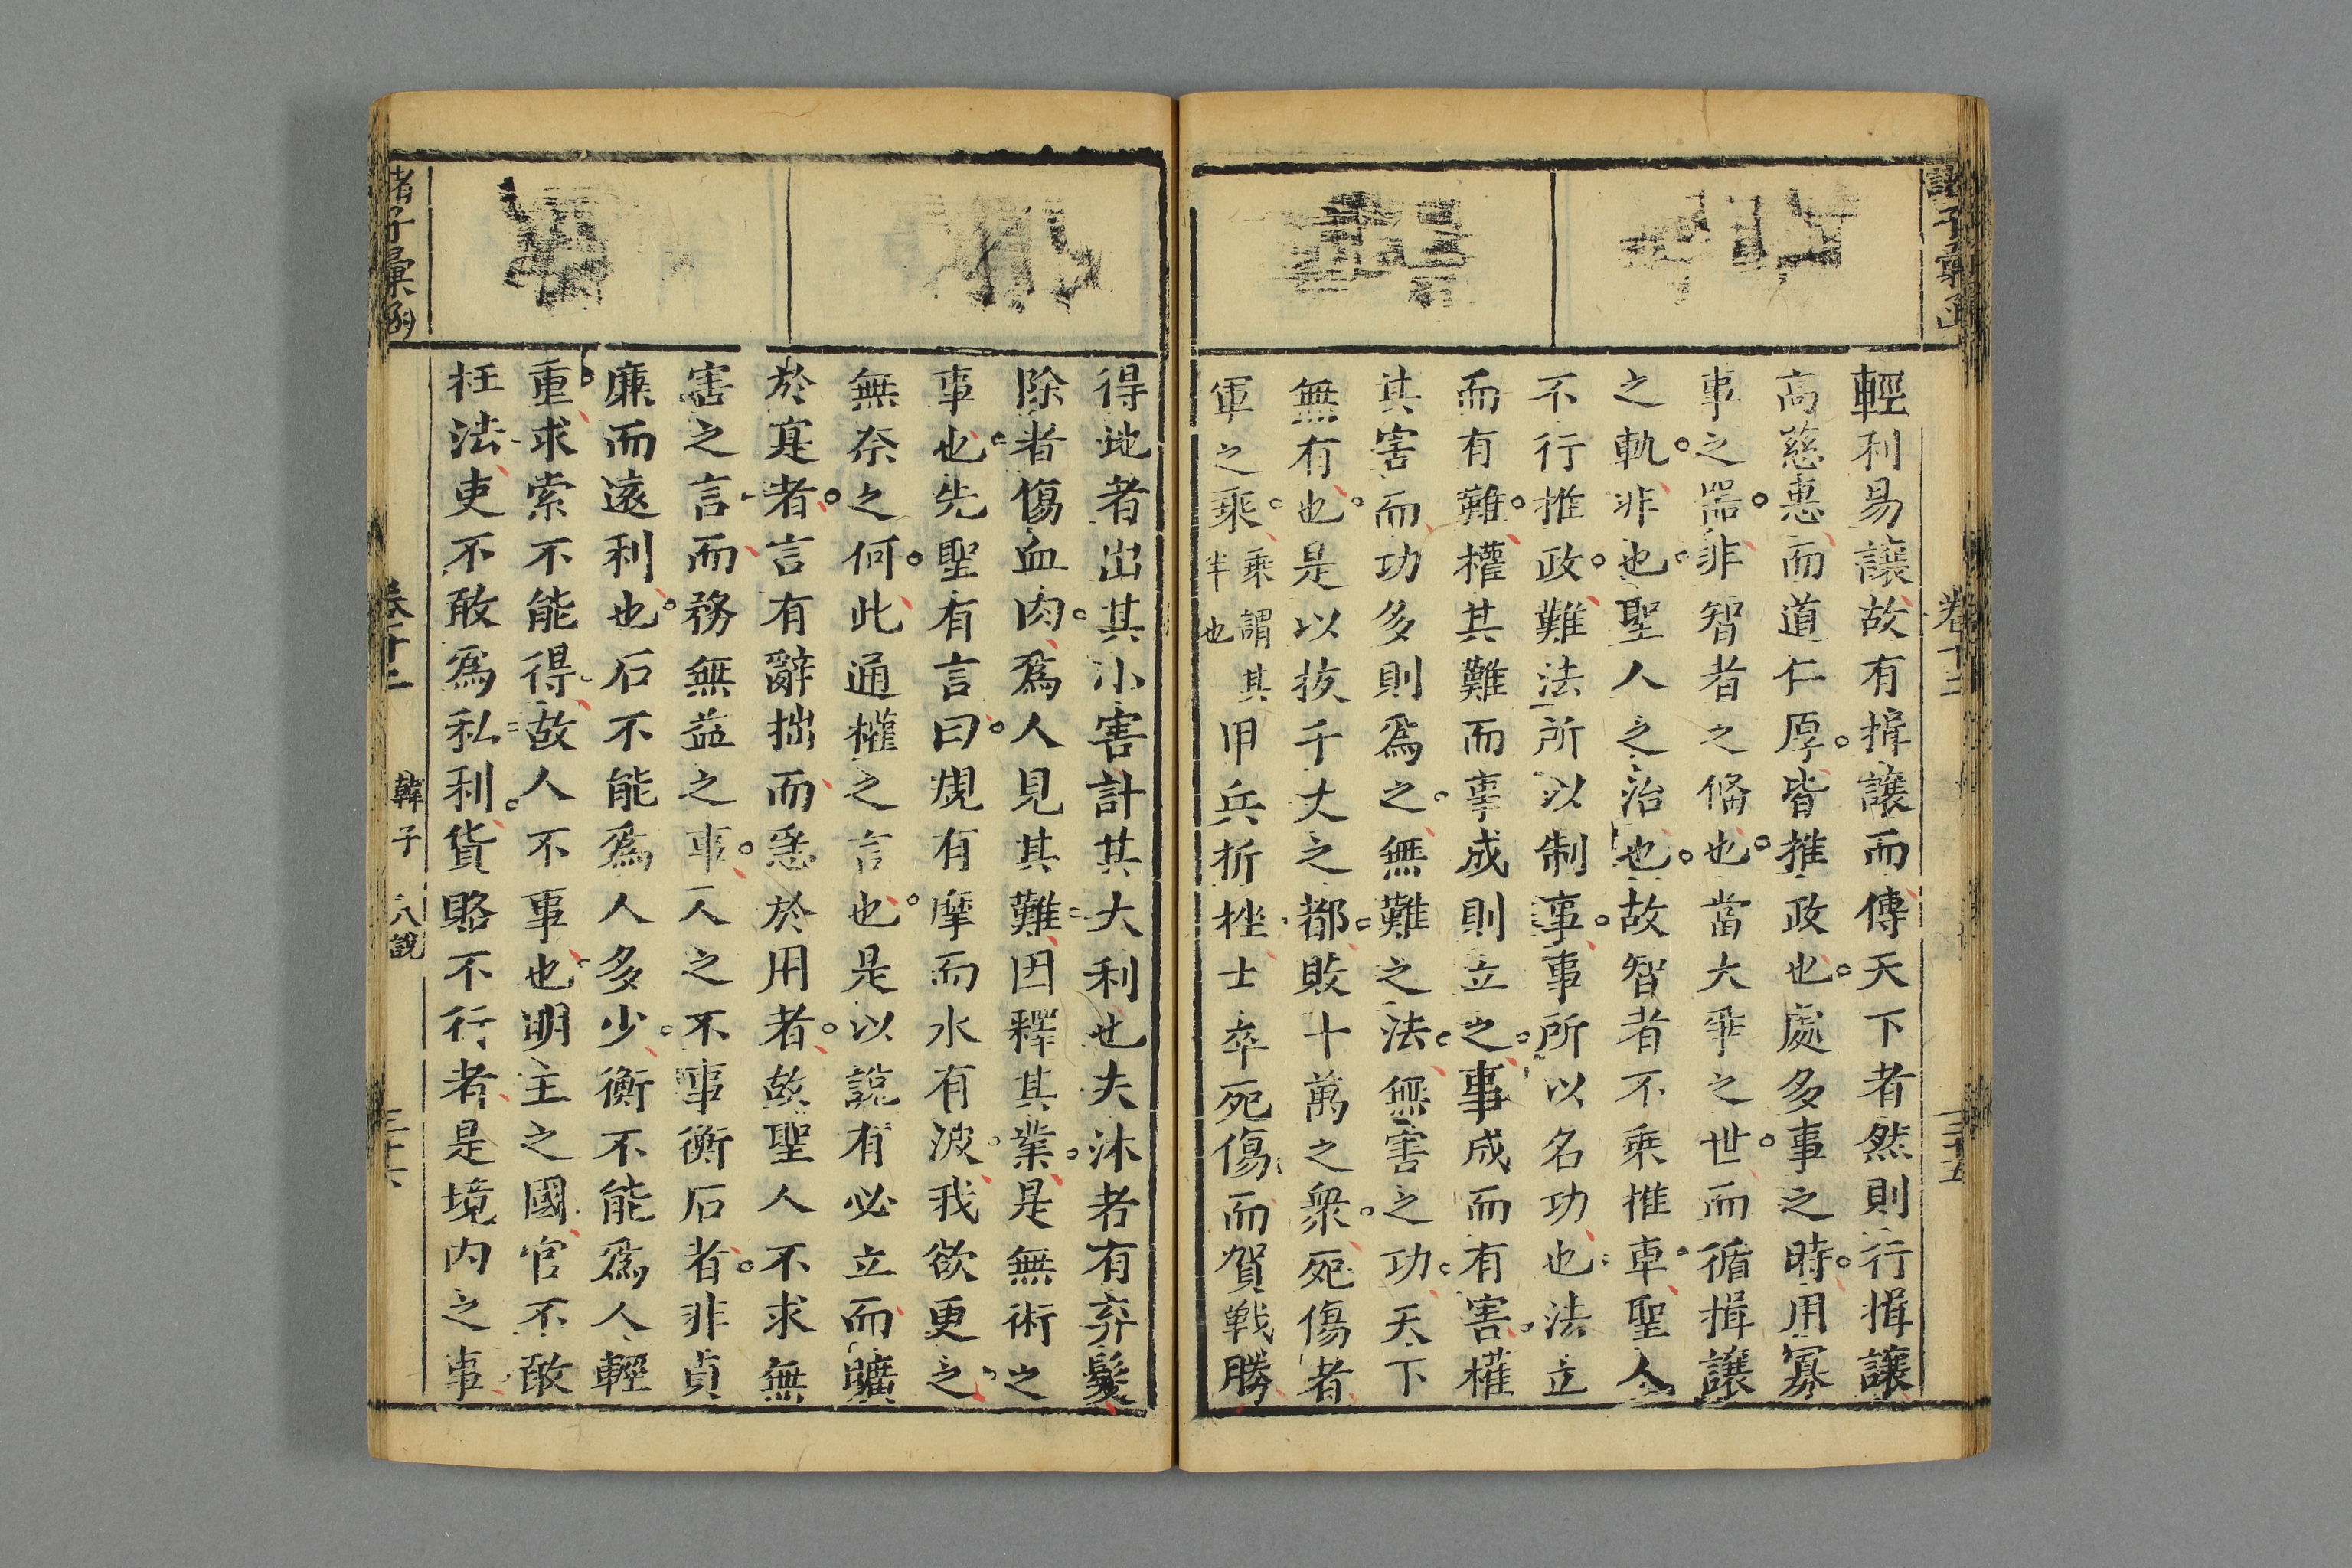 諸子彙函
卷十二
三十五
輕利易讓故有揖讓而傳天下者然則行揖讓
高慈惠而道仁厚皆推政也處多事之時用寡
事之器非智者之俻也當大爭之世而循揖讓
之軌非也聖人之治也故智者不乘推車聖人
不行推政難法所以制事事所以名功也法立
而有難權其難而事成則立之事成而有害權
其害而功多則爲之無難之法無害之功天下
無有也是以拔千丈之都敗十萬之衆死傷者
軍之乘乘謂其半也甲兵折挫士卒死傷而賀戰勝
得地者出其小害計其大利也夫沐者有弃髮
除者傷血肉爲人見其難因釋其業是無術之
事也先聖有言曰䂓有摩而水有波我欲更之
無奈之何此通權之言也是以說有必立而曠
於寔者言有辭拙而急於用者故聖人不求無
害之言而務無益之事人之不事衡石者非貞
廉而遠利也石不能爲人多少衡不能爲人輕
重求索不能得故人不事也明主之國官不敢
枉法吏不敢爲私利貨賂不行者是境內之事
諸子彙函
卷十二
韓子
八說
三十六